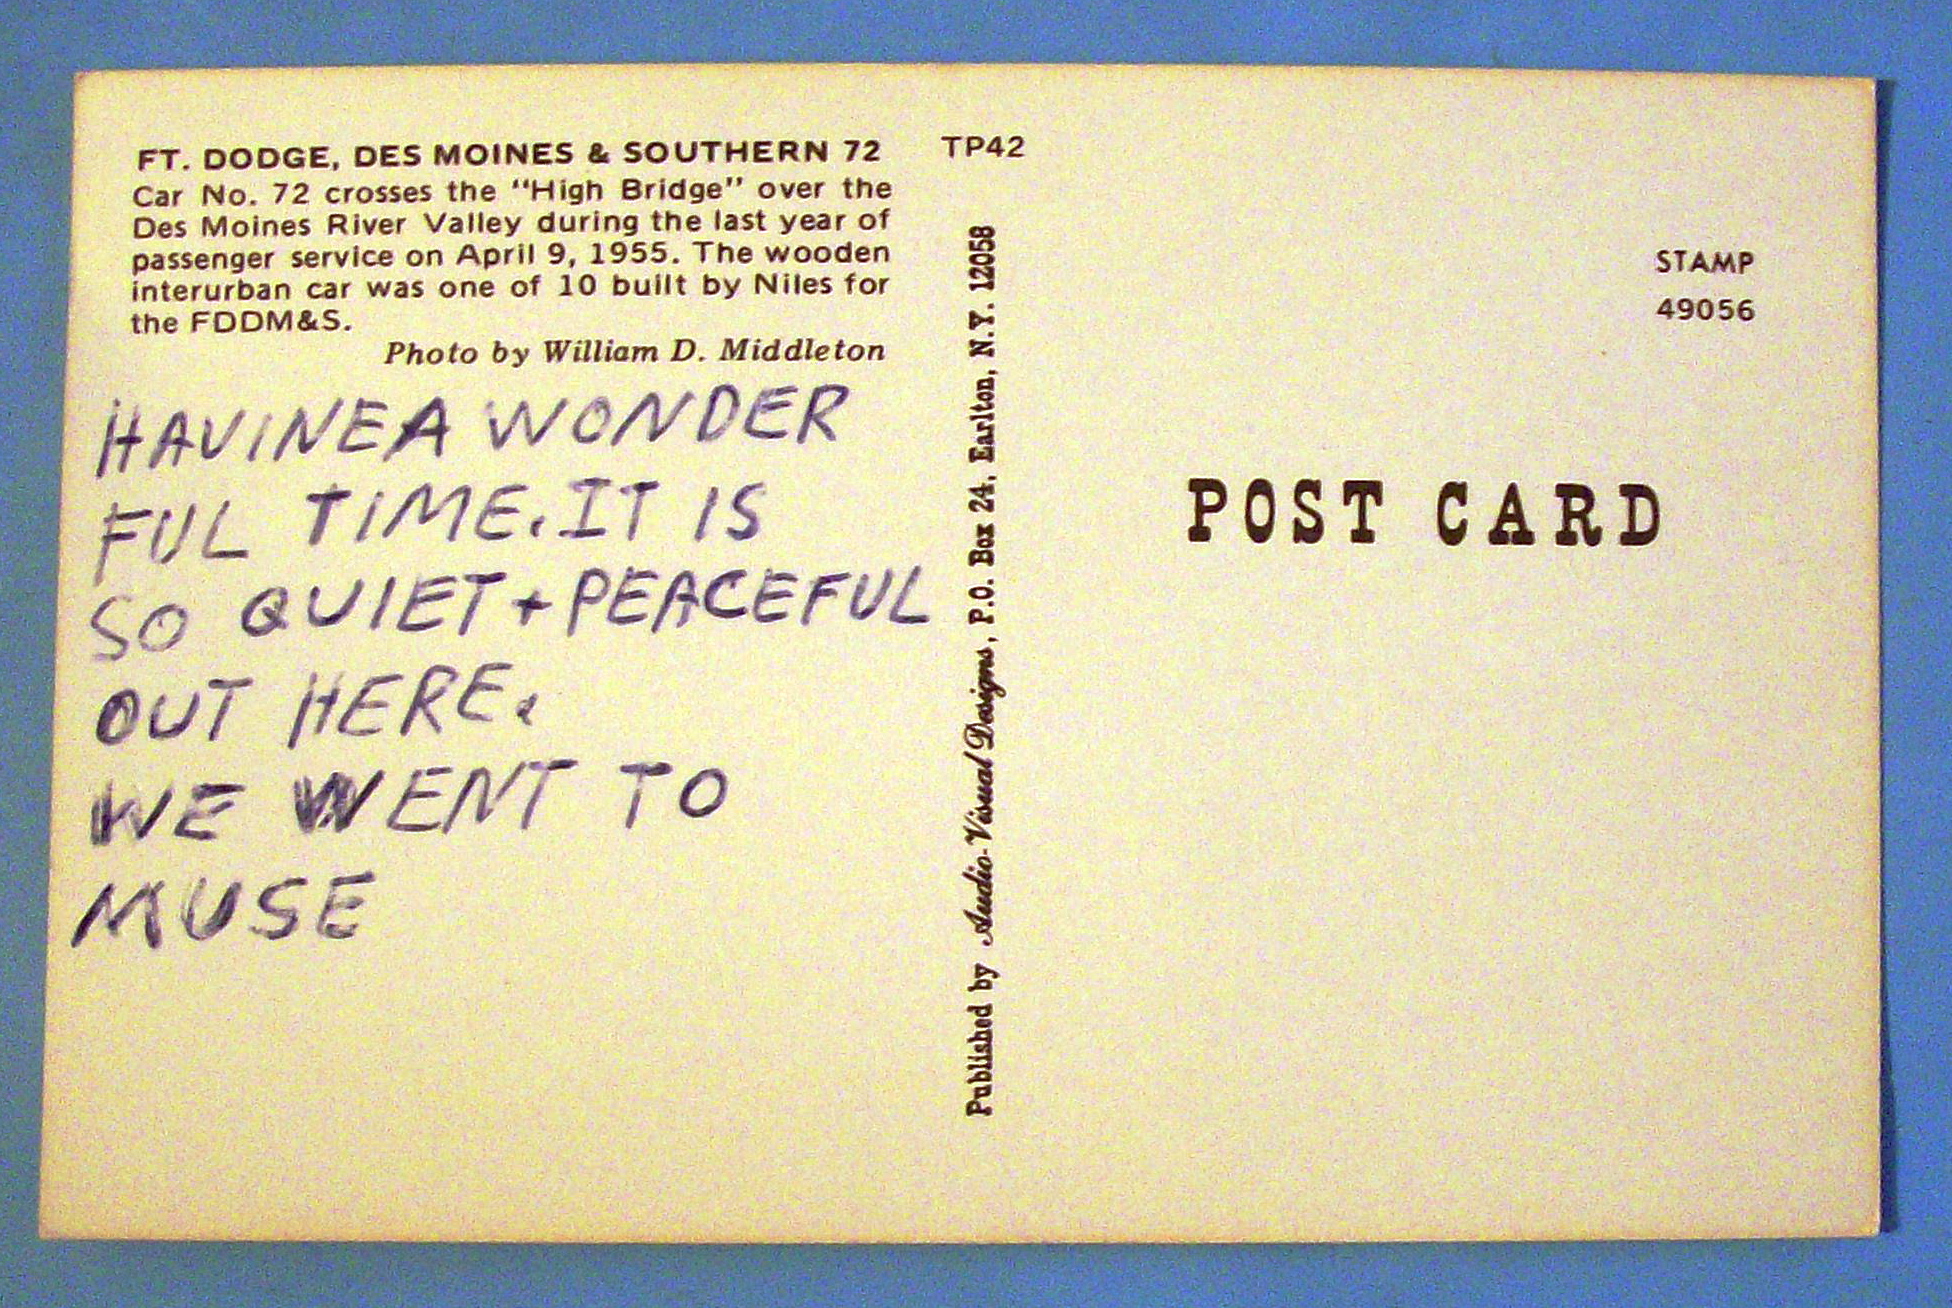 FT. DODGE, DES MOINES & SOUTHERN 72
Car No. 72 crosses the "High Bridge" over the
Des Moines River Valley during the last year of
passenger service on April 9, 1955. The wooden
interurban car was one of 10 built by Niles for
the FDDM&S.
Photo by William D. Middleton
HAVINEA WONDER
FUL TIME. IT IS
SO QUIET + PEACEFUL
OUT HERE.
WE WENT TO
MUSE
TP42
Published by Audio-Visual Designs, P.O. Box 24, Earlton, N.Y. 12058
STAMP
49056
POST CARD